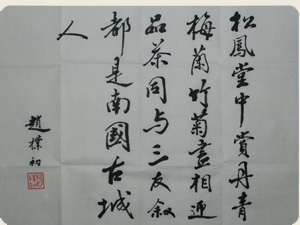 松鳳堂中賞丹青
梅蘭竹菊盡相迎
品茶同与三友叙
都是南國古城
人
趙樸初